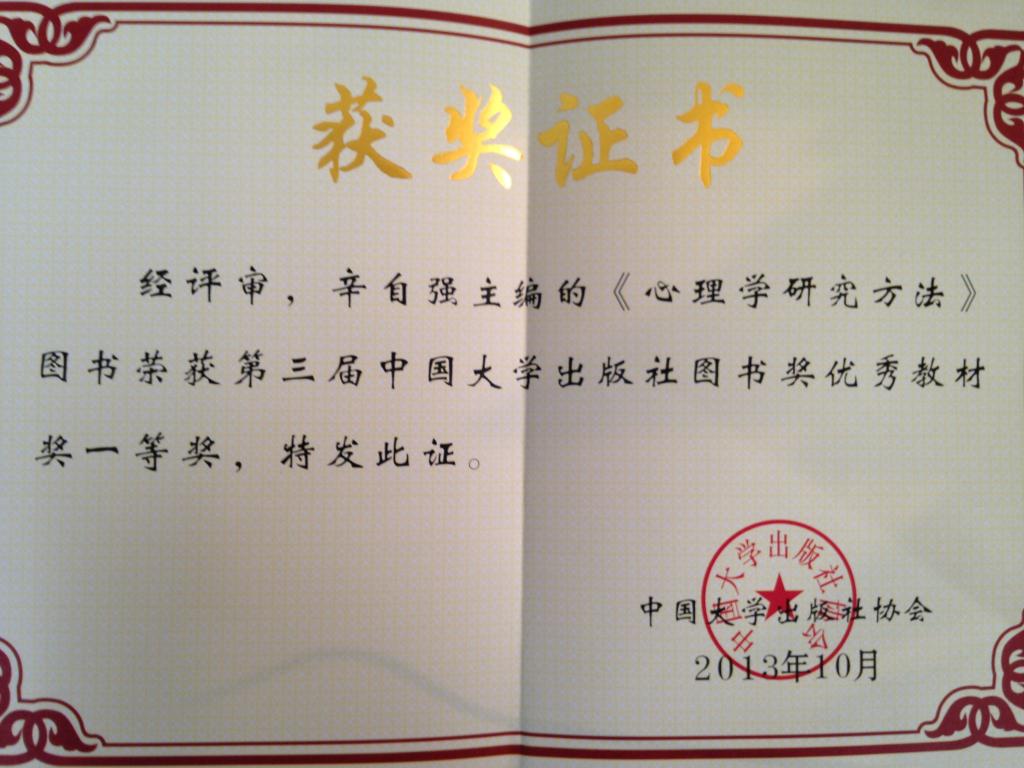 获奖证书
经评审，辛自强主编的《心理学研究方法》
图书荣获第三届中国大学出版社图书奖优秀教材
奖一等奖，特发此证。
中国大学出版社协会
中国大学出版社协会
2013年10月